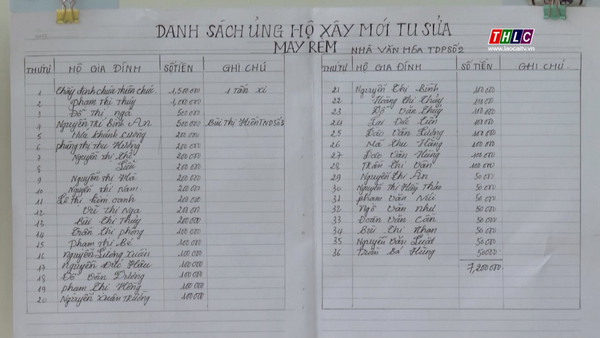 THLC
www.laocaitv.vn
DANH SÁCH ỦNG HỘ XÂY MỚI TU SỬA
MAY REM NHÀ VĂN HÓA TDP SỐ 2
THỨ TỰ HỘ GIA ĐÌNH SỐ TIỀN GHI CHÚ
1 1,500 000 1 Tấn xi
2 Phạm thị Thủy 1,000 000
3 Đỗ thị nga 500 000
4 Nguyễn Thị Bình An 500 000
5 Hứa Khánh Cường 200 000
6 phùng thị thu Hương 200 000
7 Nguyễn thị Chi 200 000
8 Liễu 200 000
9 Nguyễn thị Hà 200 000
10 Nguyễn thị năm 200 000
11 Lê thị kim oanh 200 000
12 Vũ thị nga 200 000
13 Bùi thị Thủy 200 000
14 Trần thị phòng 100 000
15 phạm thị Bé 100 000
16 nguyễn Lương Xuân 100 000
17 Nguyễn Đức Hậu 100 000
18 Đỗ Văn Dương 100 000
19 phạm thị Hồng 100 000
20 Nguyễn Xuân Trường 100 000
THỨ TỰ HỘ GIA ĐÌNH SỐ TIỀN GHI CHÚ
21 Nguyễn Thị Bình 100 000
22 Hoàng thị Thủy 100 000
23 Đỗ Văn Thủy 100 000
24 100 000
25 Đào Văn Lương 100 000
26 Mã thu Hằng 100 000
27 Đào Văn Hùng 100 000
28 Trần Thị Vân 100 000
29 Nguyễn Thị An 50 000
30 Nguyễn Thị Thảo 50 000
31 phạm Văn Mùi 50 000
32 Ngô Văn như 50 000
33 Đoàn Văn Căn 50 000
34 Bùi thị Nhạn 50 000
35 Nguyễn Văn 50 000
36 Trần Bá Hùng 50 000
7,200 000